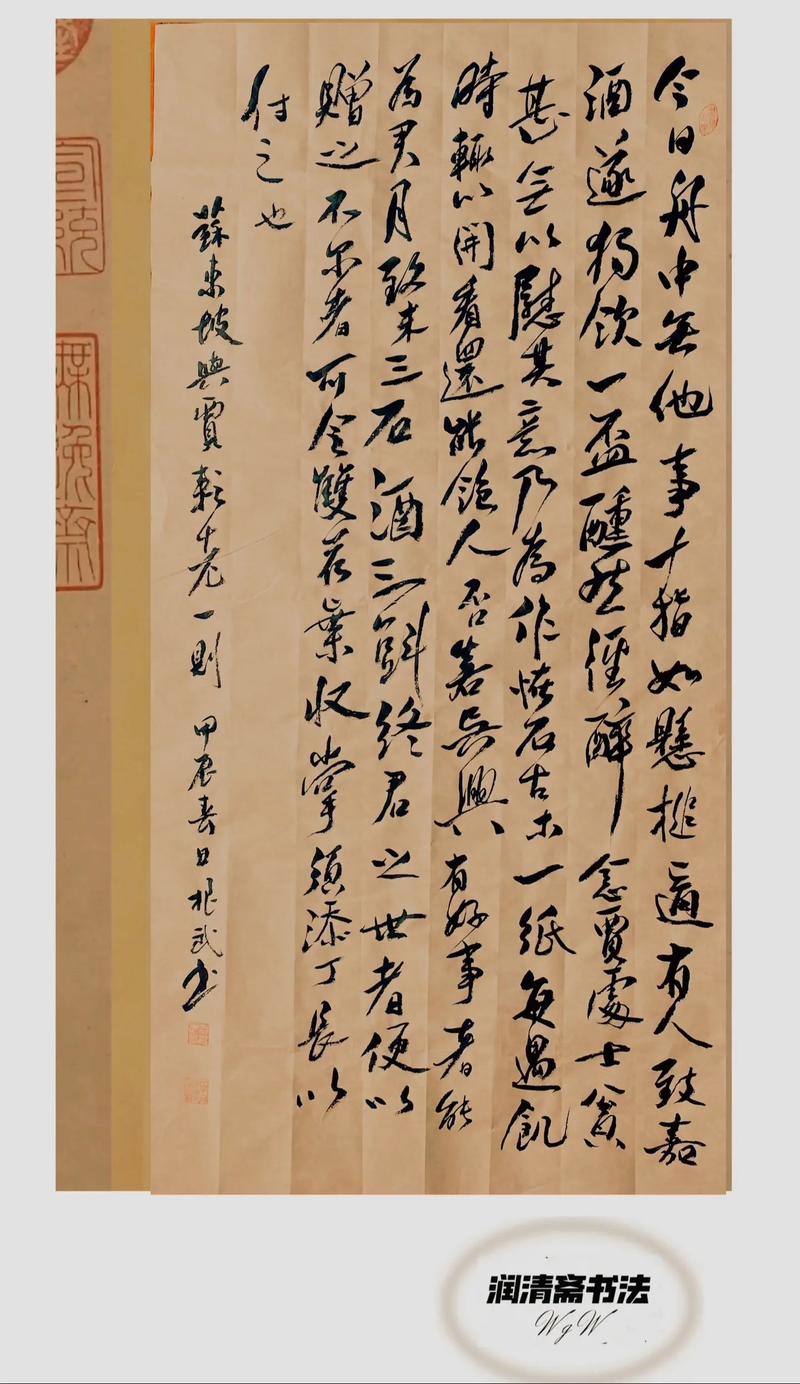 今日舟中無他事十指如懸槌適有人致嘉
酒遂獨飲一盃醺然徑醉念賈處士貧
甚無以慰其意乃為作怪石古木一紙每遇飢
時輒以開看還能飽人否若吳興有好事者能
為君月致米三石酒三斗終君之世者便以
贈之不尔者可令雙荷葉收掌須添丁長以
付之也
蘇東坡與賈耘老一則 甲辰春日根武书
润清斋书法
WgW